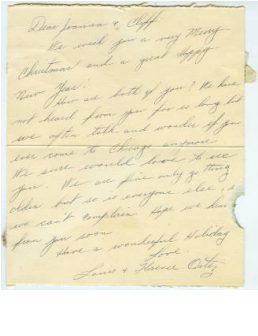 Dear Joanna & Cliff
We wish you a very Merry
Christmas and a great Happy
New Year!
How are both of you? We have
not heard from you for so long but
we often talk and wonder if you
ever come to Chicago anymore
We sure would love to see
you. We are fine only getting
older but so is everyone else,
we can't complain. Hope we hear
from you soon
Have a wonderful Holiday
Love
& Florence